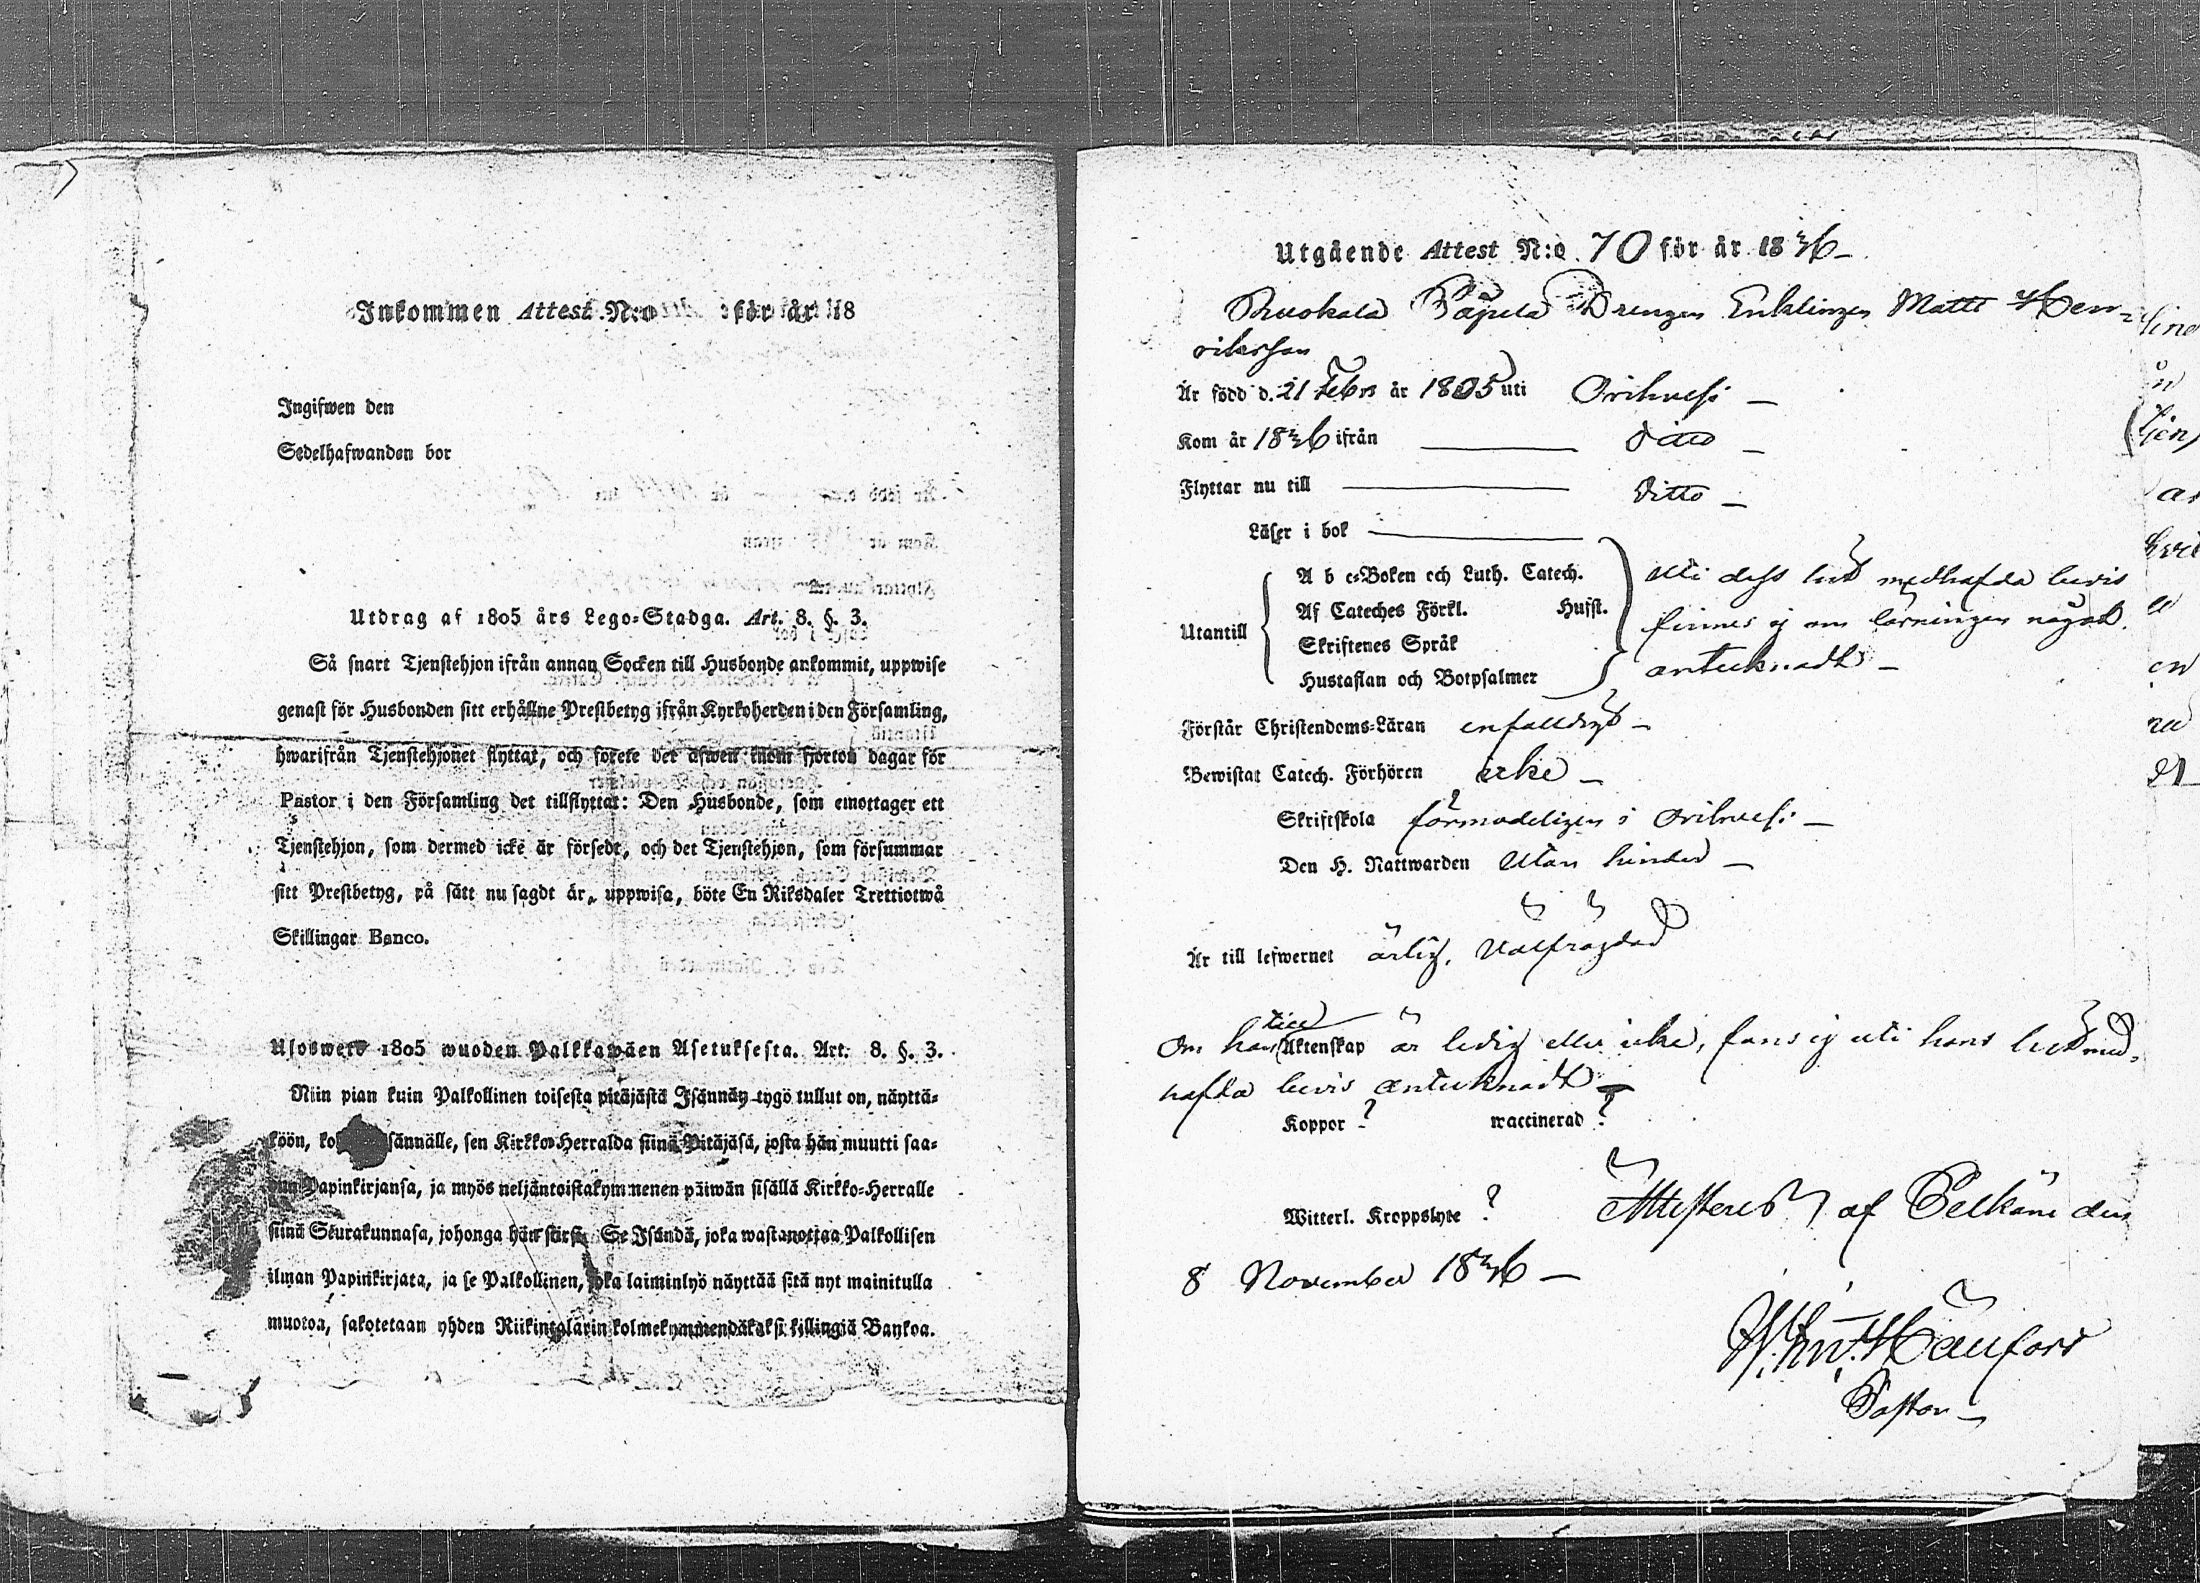 Inkommen Attest N:o för år 18
Ingifwen den
Sedelhafwanden bor
Utdrag af 1805 års Lego-Stadga. Art. 8. §. 3.
Så snart Tjenstehjon ifrån annan Socken till Husbonde ankommit, uppwise
genast för Husbonden sitt erhållne Prestbetyg ifrån Kyrkoherden i den Församling,
hwarifrån Tjenstehjonet flyttat, och förete det äfwen inom fjorton dagar för
Pastor i den Församling det tillflyttat: Den Husbonde, som emottager ett
Tjenstehjon, som dermed icke är försedt, och det Tjenstehjon, som försummar
sitt Prestbetyg, på sätt nu sagdt är, uppwisa, böte En Riksdaler Trettiotwå
Skillingar Banco.
Ulosweto 1805 wuoden Palkkawäen Asetuksesta. Art. 8. §. 3.
Niin pian kuin Palkollinen toisesta pitäjästä Isännän tygö tullut on, näyttä-
köön, sännälle, sen Kirkko-Herralda siinä Pitäjäsä, josta hän muutti saa-
Papinkirjansa, ja myös neljäntoistakymmenen päiwän sisällä Kirkko-Herralle
siinä Seurakunnasa, johonga hän siirsi. Se Isändä, joka wastanottaa Palkollisen
ilman Papinkirjata, ja se Palkollinen, joka laiminlyö näyttää sitä nyt mainitulla
muotoa, sakotetaan yhden Riikintalarin kolmekymmendäkaksi killingiä Bankoa.
Utgående Attest N:o 70 för år 1836
Ruokola Papula Drengen Enklingen Matts Hen-
riksson
Är född d. 21 Febr år 1805 uti Orihvesi
Kom år 1836 ifrån ditto
Flyttar nu till Ditto
Läser i bok
Utantill
A b c-Boken och Luth. Catech.
Af Cateches Förkl. Husst.
Skriftenes Språk
Hustaflan och Botpsalmer
Uti dess hit medhafda bevis
finnes ej om läsningen något
antecknadt
Förstår Christendoms-Läran enfalldigt
Bewistat Catech. Förhören icke
Skriftskola förmodeligen i Orihvesi
Den H. Nattwarden Utan hinder
Är till lefwernet ärlig, välfrägdad
Om han till Äktenskap är ledig eller icke, fans ej uti hans hit med-
hafda bevis antecknadt
Koppor ? waccinerad ?
Witterl. Kroppslyte ? Attesteras af Pelkäne den
8 November 1836
Pastor